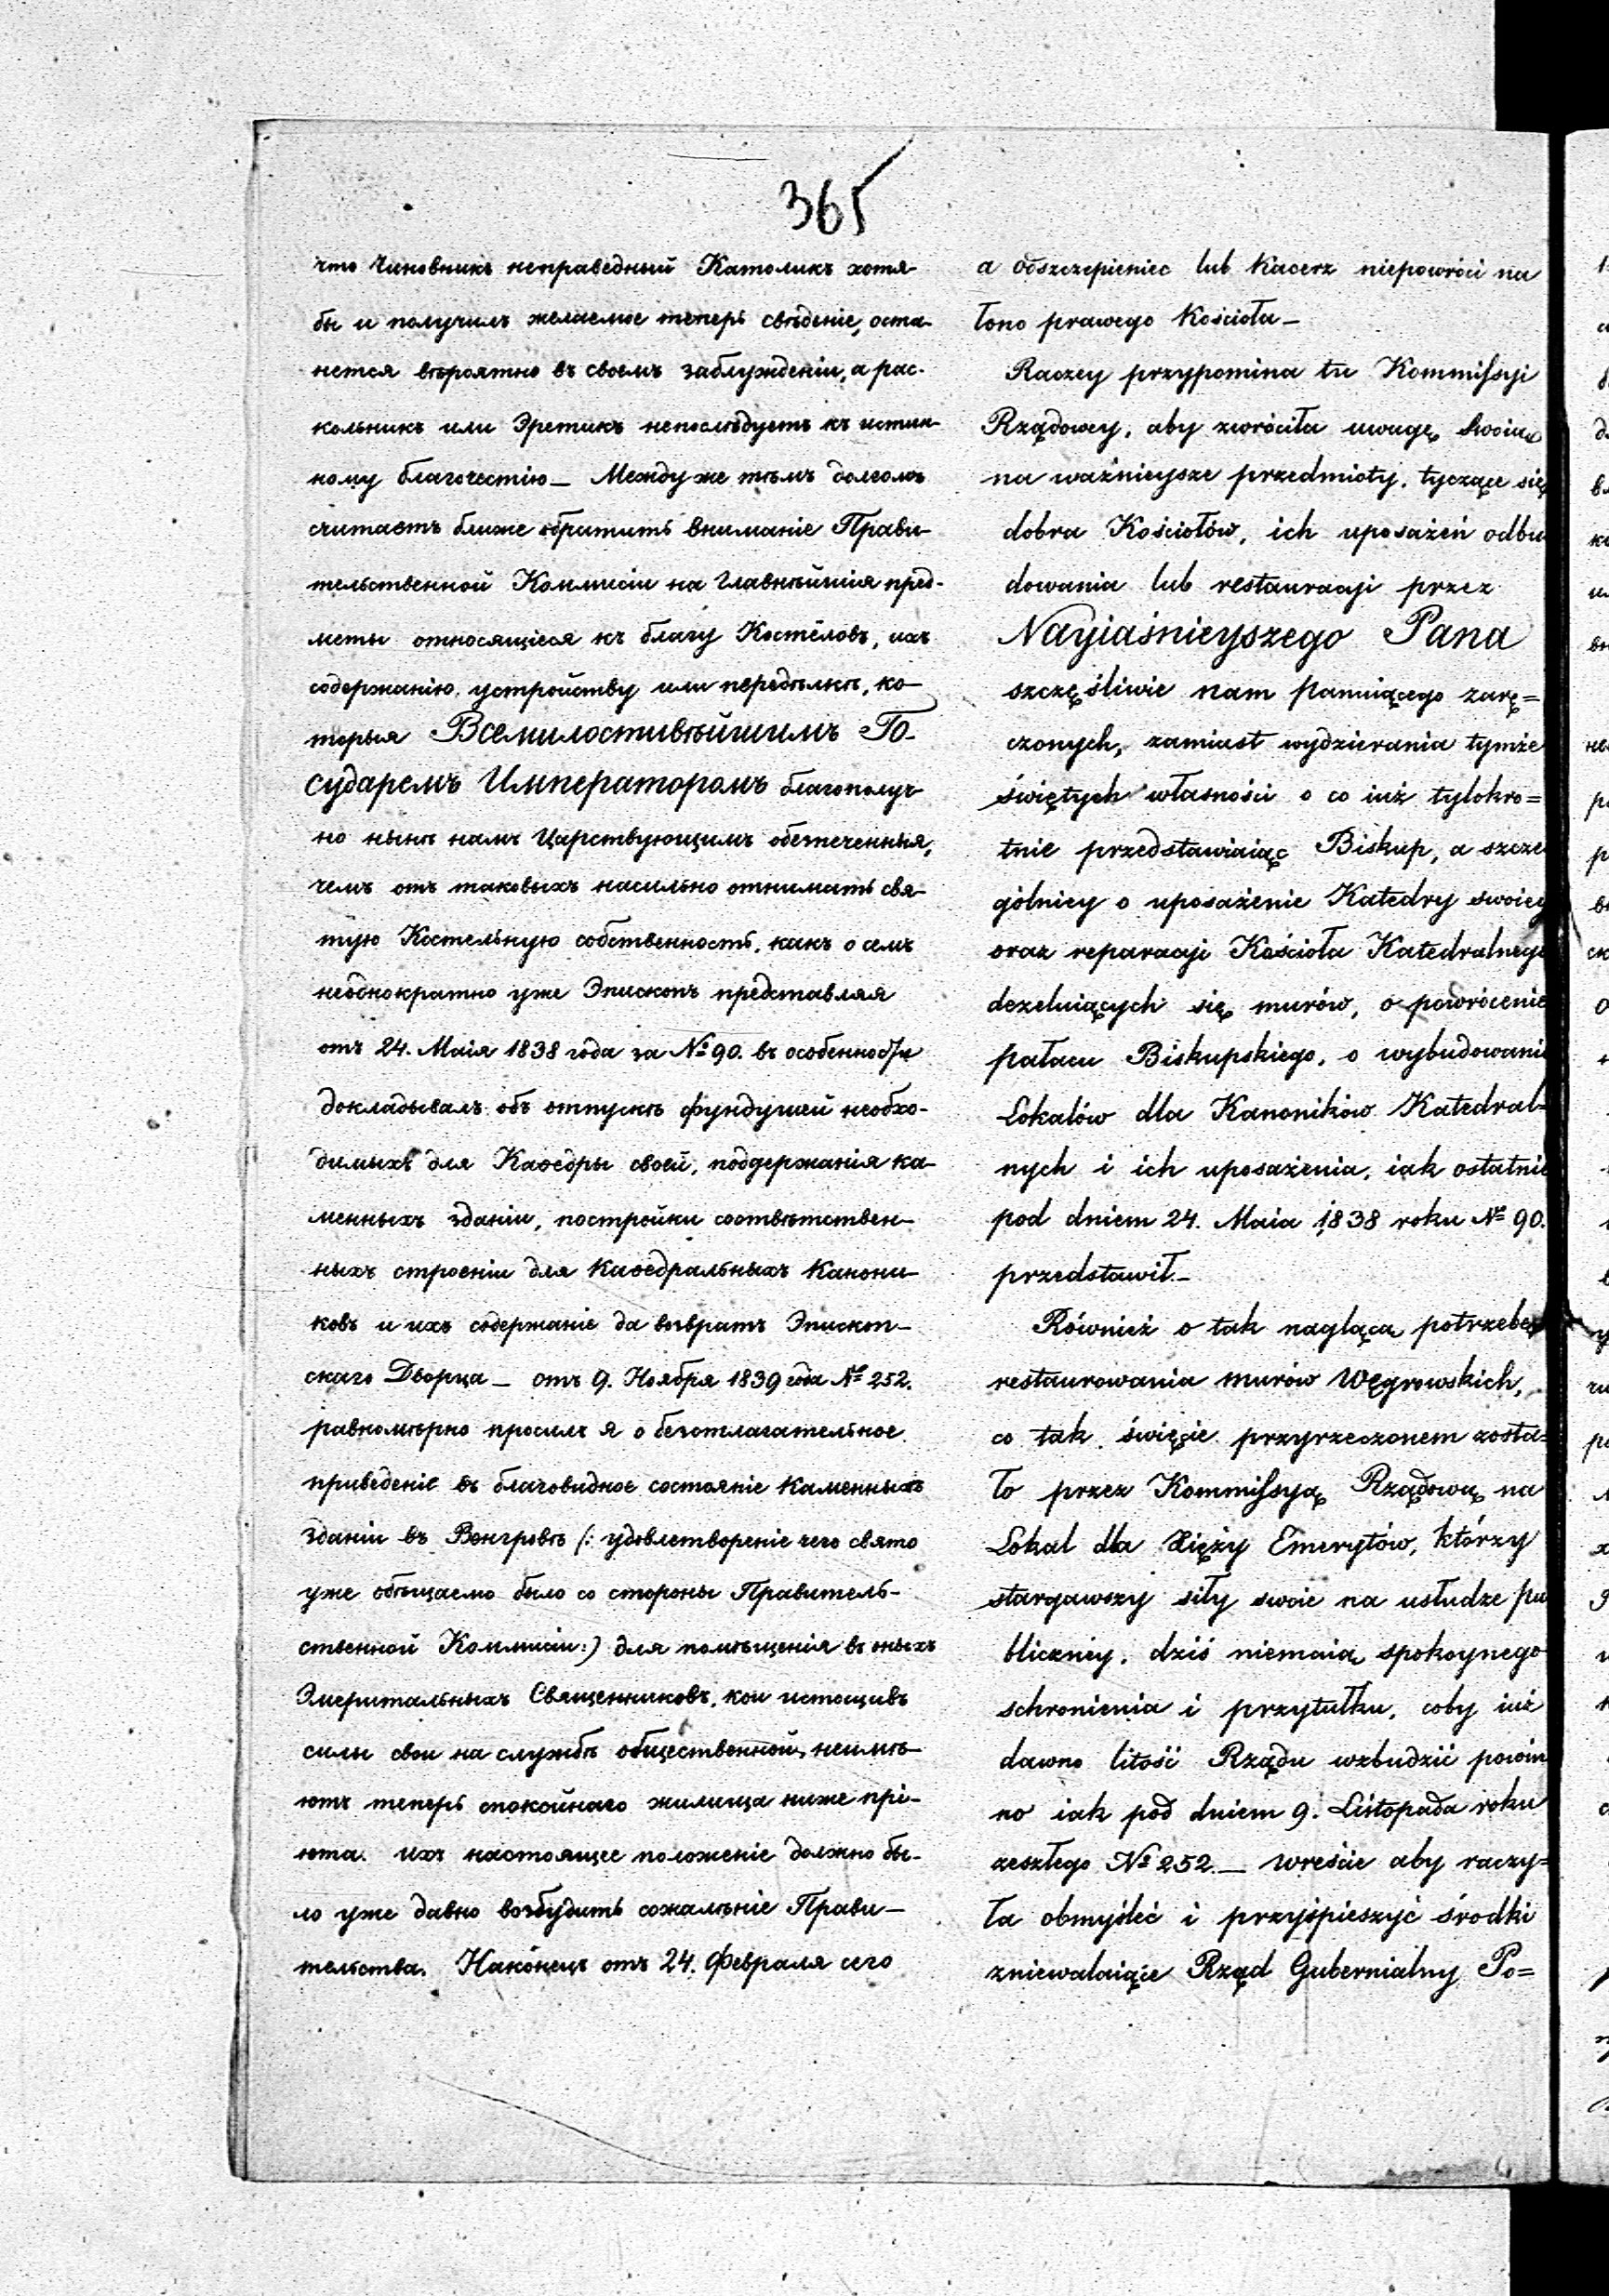 365
что Чиновникъ неправедный Католикъ хотя-
бы и получилъ желаемое теперь свѣденіе, оста-
нется вѣроятно въ своемъ заблужденіи, а рас-
кольникъ или Эретикъ непослѣдуетъ къ истин-
ному благочестію_ Между же тѣмъ долгомъ
считаетъ ближе обратить вниманіе Прави-
тельственной Коммисіи на Главнѣйшія пред-
меты относящіеся къ благу Костёловъ, ихъ
содержанію, устройству или передѣлкѣ, ко-
торыя Всемилостивѣйшимъ Го-
сударемъ Императоромъ благополуч-
но нынѣ намъ Царствующимъ обезпеченныя,
чемъ отъ таковыхъ насильно отнимать свя-
тую Костельную собственность, какъ о семъ
неоднократно уже Эпископъ представляя
отъ 24. Маія 1838 года за № 90. въ особенности
докладывалъ объ отпускѣ фундушей необхо-
димыхъ для Каѳедры своей, поддержанія ка-
менныхъ зданіи, постройки соотвѣтствен-
ныхъ строеніи для Каѳедральныхъ Канони-
ковъ и ихъ содержаніе да возвратъ Эпископ-
скаго Дворца_ отъ 9. Ноября 1839 года № 252.
равномѣрно просилъ я о безотлагательное
приведеніе въ благовидное состояніе Каменныхъ
зданіи въ Венгровѣ (: удовлетвореніе чего свято
уже обѣщаемо было со стороны Правитель-
ственной Коммисіи:) для помѣщенія въ оныхъ
Эмеритальныхъ Священниковъ, кои истощивъ
силы свои на службѣ общественной, неимѣ-
ютъ теперь спокойнаго жилища ниже прі-
юта. Ихъ настоящее положеніе должно бы-
ло уже давно возбудить сожалѣніе Прави-
тельства. Наконецъ отъ 24. Февраля сего
a odszczepieniec lub Kacerz niepowróci na
łono prawego Kościoła_
Raczey przypomina tu Kommissyi
Rządowey, aby zwróciła uwagę Swoią
na ważnieysze przedmioty, tyczące się
dobra Kościołów, ich uposażeń odbu
dowania lub restauracji przez
Nayiaśnieyszego Pana
szczęśliwie nam panuiącego zarę=
czonych, zamiast wydzierania tymże
świętych własności o co iuż tylokro=
tnie przedstawiaiąc Biskup, a szcze
gólniey o uposażenie Katedry swoiey
oraz reparacji Kościoła Katedralnego
dezeluiących się murów, o powrócenie
pałacu Biskupskiego, o wybudowanie
Lokalów dla Kanoników Katedral=
nych i ich uposażenia, iak ostatnie
pod dniem 24. Maia 1838 roku № 90.
przedstawił_
Również o tak naglącą potrzebę
restaurowania murów Węgrowskich,
co tak święcie przyrzeczonem zosta=
ło przez Kommissyą Rządową na
Lokal dla Xięży Emerytów, którzy
stargawszy siły swoie na usłudze pu
bliczney, dziś niemaią spokoynego
schronienia i przytułku, coby iuż
dawno litość Rządu wzbudzić powin
no iak pod dniem 9. Listopada roku
zeszłego № 252._ wreście aby raczy=
ła obmyśleć i przyśpieszyć środki
zniewalaiące Rząd Gubernialny Po=